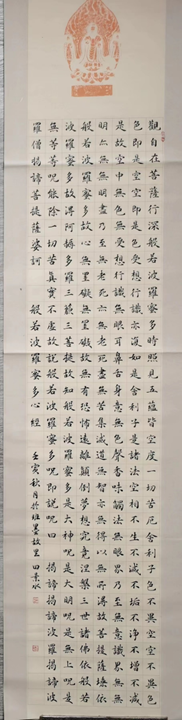 觀自在菩薩行深般若波羅蜜多時照見五蘊皆空度一切苦厄舍利子色不異空空不異色
色即是空空即是色受想行識亦復如是舍利子是諸法空相不生不滅不垢不淨不增不減
是故空中無色無受想行識無眼耳鼻舌身意無色聲香味觸法無眼界乃至無意識界無無
明亦無無明盡乃至無老死亦無老死盡無苦集滅道無智亦無得以無所得故菩提薩埵依
般若波羅蜜多故心無罣礙無罣礙故無有恐怖遠離顛倒夢想究竟涅槃三世諸佛依般若
波羅蜜多故得阿耨多羅三藐三菩提故知般若波羅蜜多是大神呪是大明呪是無上呪是
無等等呪能除一切苦真實不虛故說般若波羅蜜多呪即說呪曰 揭諦揭諦波羅揭諦波
羅僧揭諦菩提薩婆訶 般若波羅蜜多心經 壬寅秋月於班墨故里田